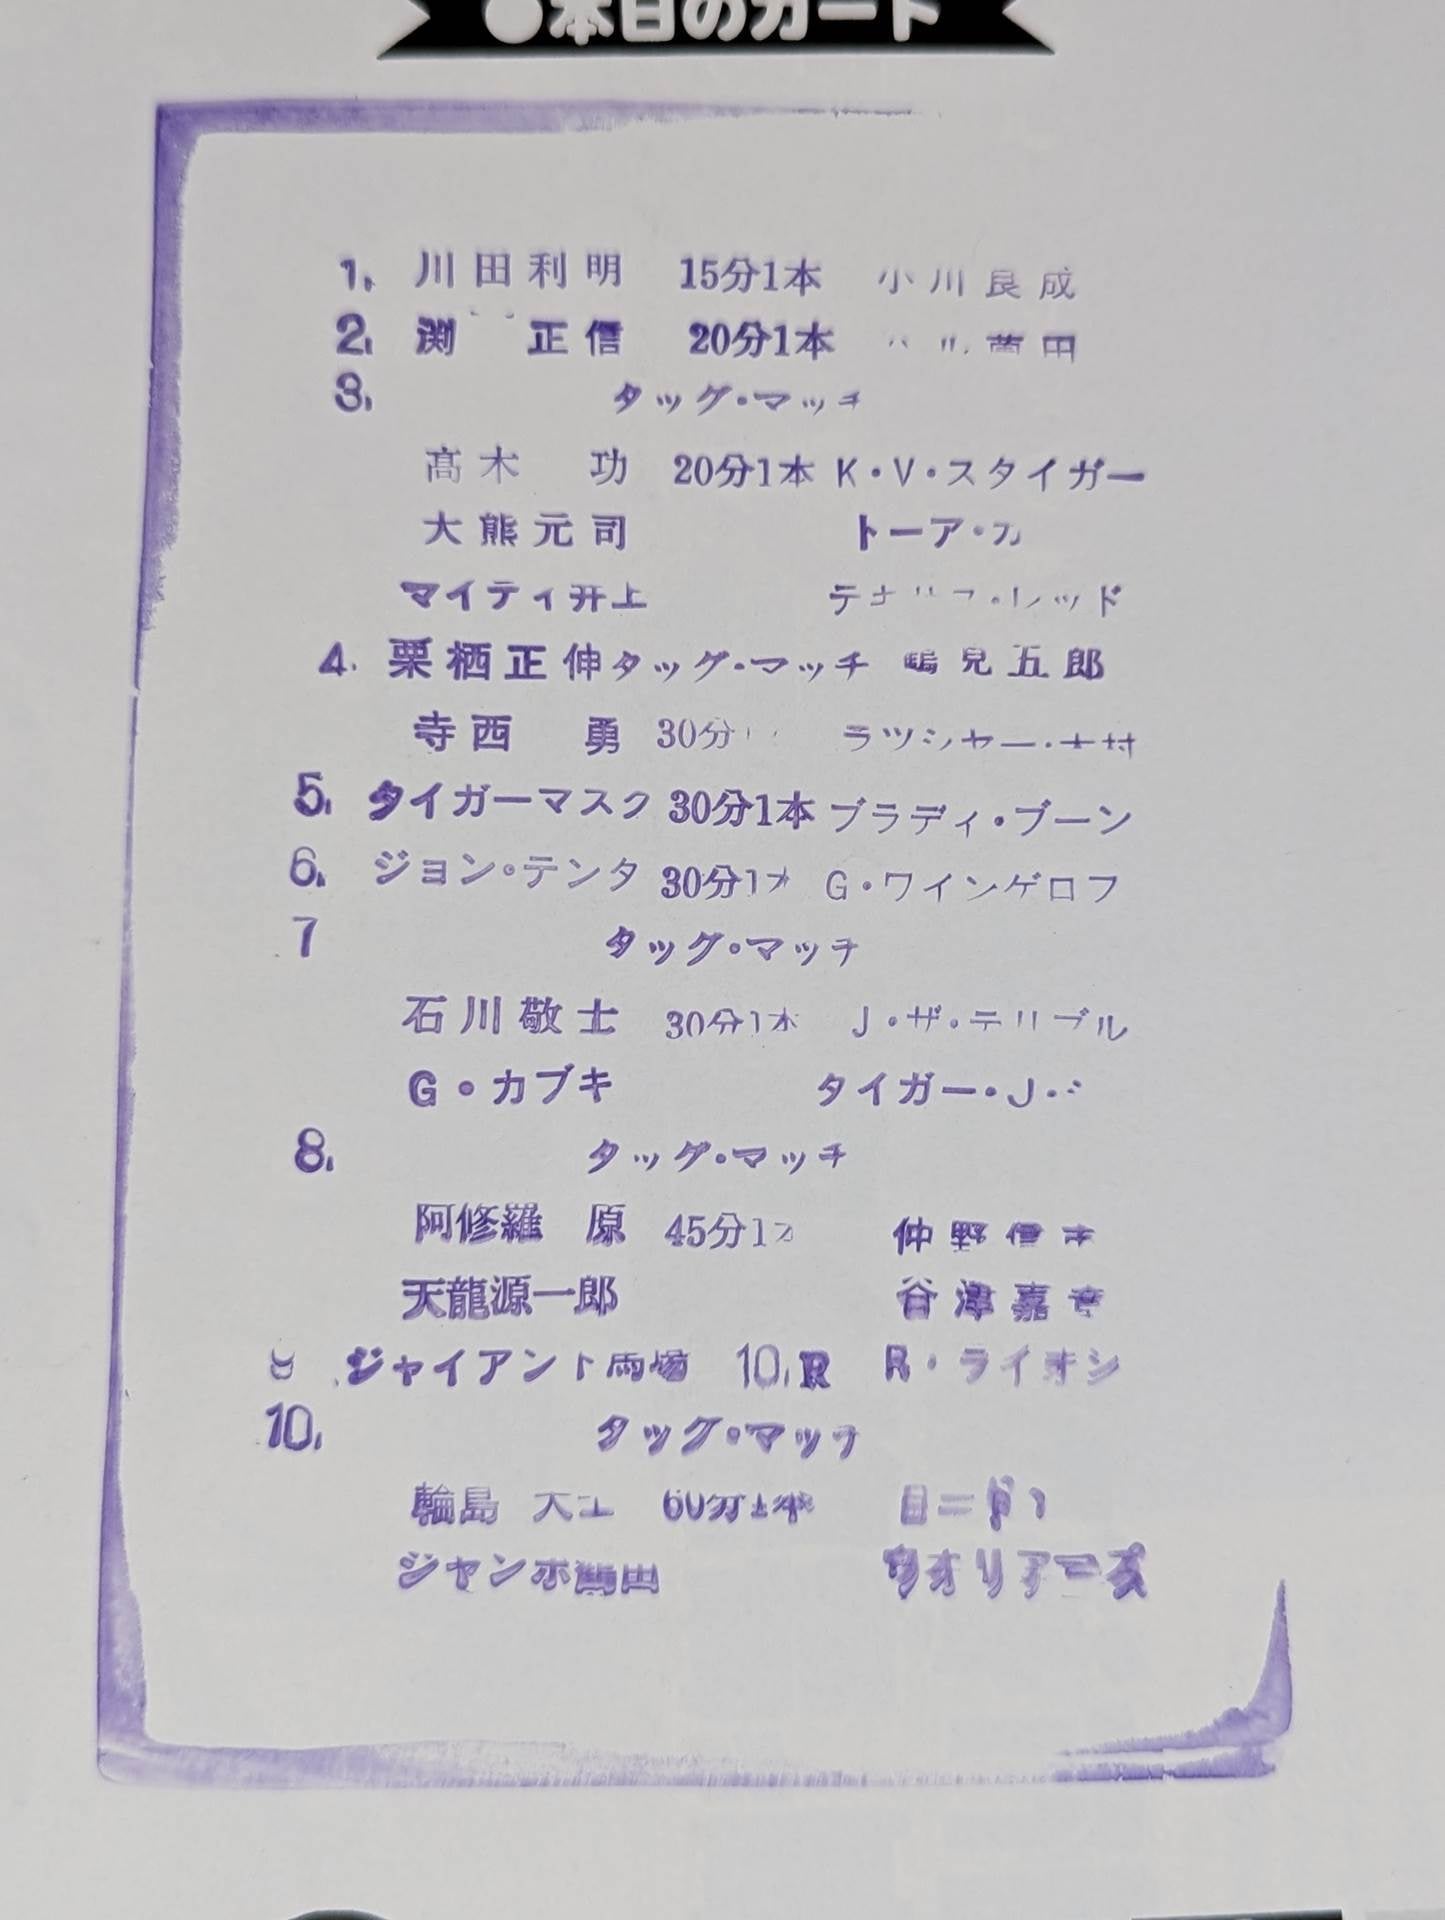 ●本日のカード
1. 川田利明 15分1本 小川良成
2. 渕 正信 20分1本 ハル薗田
3. タッグ・マッチ
高木 功 20分1本 K・V・スタイガー
大熊元司 トーア・カ
マイティ井上 レッド
4. 栗栖正伸 タッグ・マッチ 鶴見五郎
寺西 勇 30分 ラッシャー・木村
5. タイガーマスク 30分1本 ブラディ・ブーン
6. ジョン・テンタ 30分1本 G・ワインゲロフ
7 タッグ・マッチ
石川敬士 30分1本 J・ザ・テリブル
G・カブキ タイガー・J・
8. タッグ・マッチ
阿修羅 原 45分1本 仲野信市
天龍源一郎 谷津嘉章
ジャイアント馬場 10.R R・ライオン
10. タッグ・マッチ
輪島 大士 60分1本 ロード
ジャンボ鶴田 ウオリアーズ